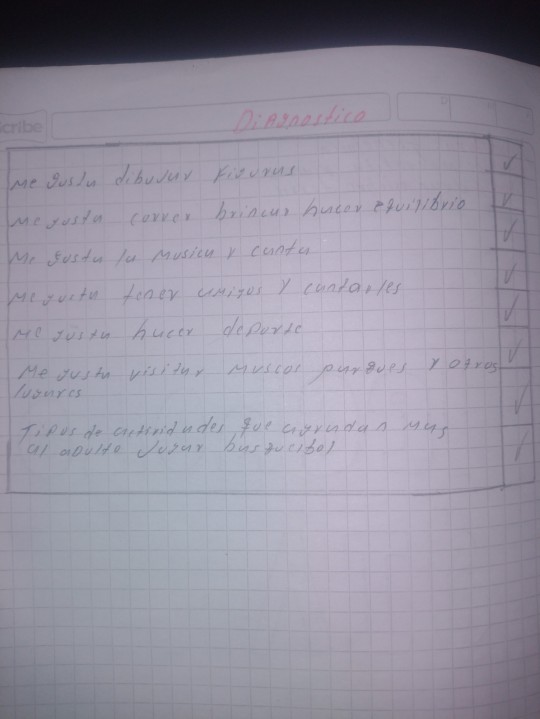 cribe
Diagnostico
Me gusta dibujar figuras
Me gusta correr brincar hacer equilibrio
Me gusta la musica y canta
Me gusta tener amigos y contarles
Me gusta hacer deporte
Me gusta visitar muscos parques y otros
lugares
Tipos de que agradan mas
al adulto jugar busquetbol